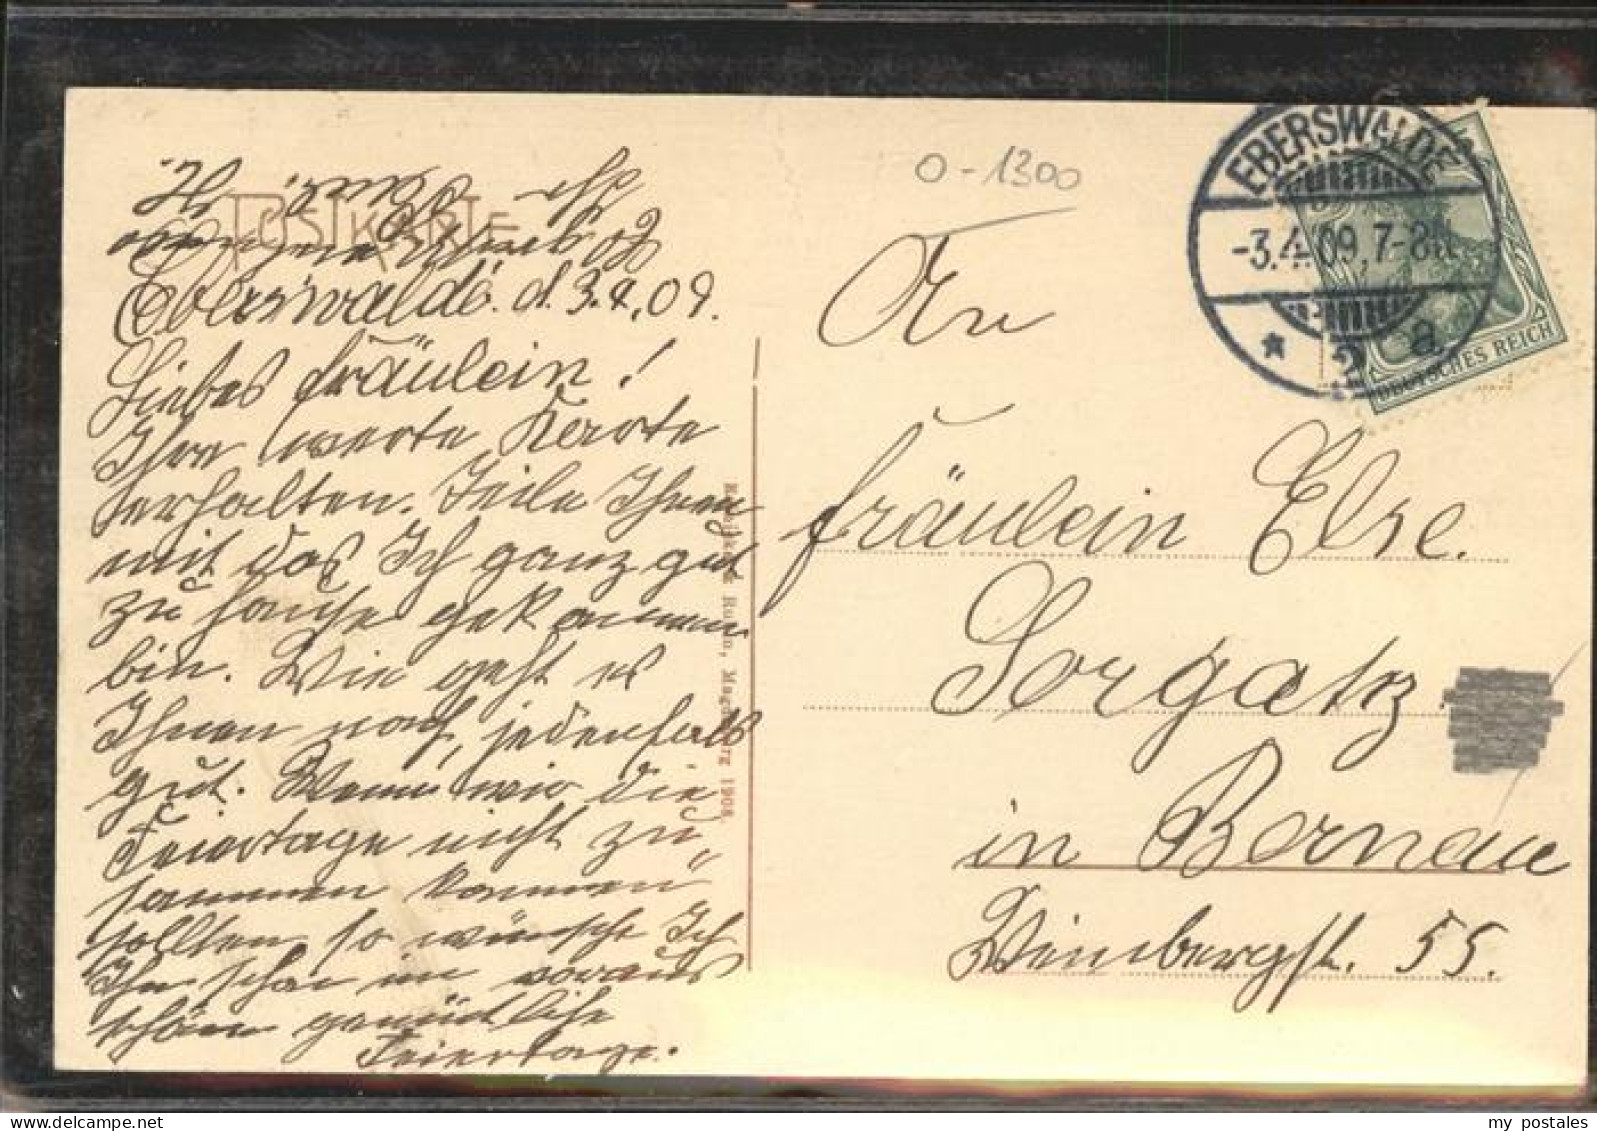 POSTKARTE
Eberswalde. d. 3.4.09.
Liebes Fräulein!
Ihre werte Karte
erhalten. Teile Ihnen
mit das Ich ganz gut
zu hause gekommen
bin. Wie geht es
Ihnen noch, jedenfals
gut. Wenn wir die
Feiertage nicht zu-
sammen kommen
sollten so wünsche Ich
Ihn schon im voraus
schöne gemütliche
Feiertage.
Magdeburg 1908.
0-1300
EBERSWALDE
-3.4.09.7-8N.
* 2 a
DEUTSCHES REICH
An
Fräulein Else.
Sorgatz
in Bernau
Weinbergstr. 55.
my postales